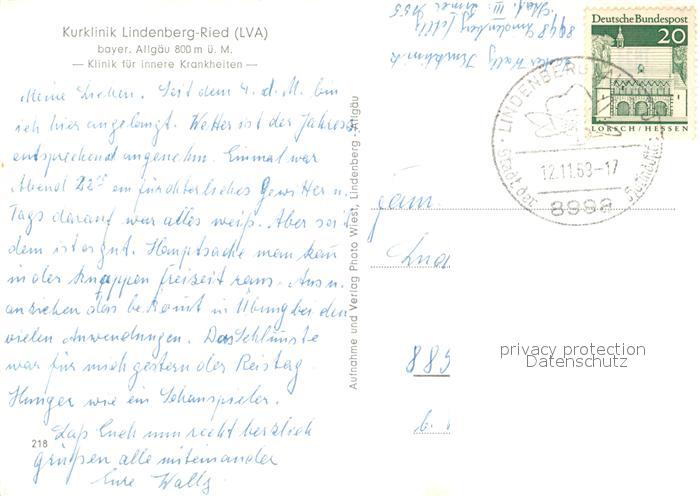 Kurklinik Lindenberg-Ried (LVA)
bayer. Allgäu 800 m ü. M.
— Klinik für innere Krankheiten —
Meine Lieben. Seit dem 4. d. M. bin
ich hier angelangt. Wetter ist der Jahresz.
entsprechend angenehm. Einmal war
Abend 22⁰⁰ ein fürchterliches Gewitter u.
Tags darauf war alles weiß. Aber seit
dem ist es gut. Hauptsache man kan
in der knappen freizeit raus. Aus u.
anziehen das bekomt in Übung bei den
vielen Anwendungen. Das Schlimste
war für mich gestern der Reistag.
Hunger wie ein Schauspieler.
Laßt Euch nun recht herzlich
grüßen alle miteinander
Eure Wally
218
Aufnahme und Verlag Photo Wiest, Lindenberg Allgäu
Wally Kurklinik
8998 Lindenberg
Deutsche Bundespost
20
LORSCH/HESSEN
LINDENBERG
12.11.69-17
Stadt der
8998
Fam.
885
privacy protection
Datenschutz